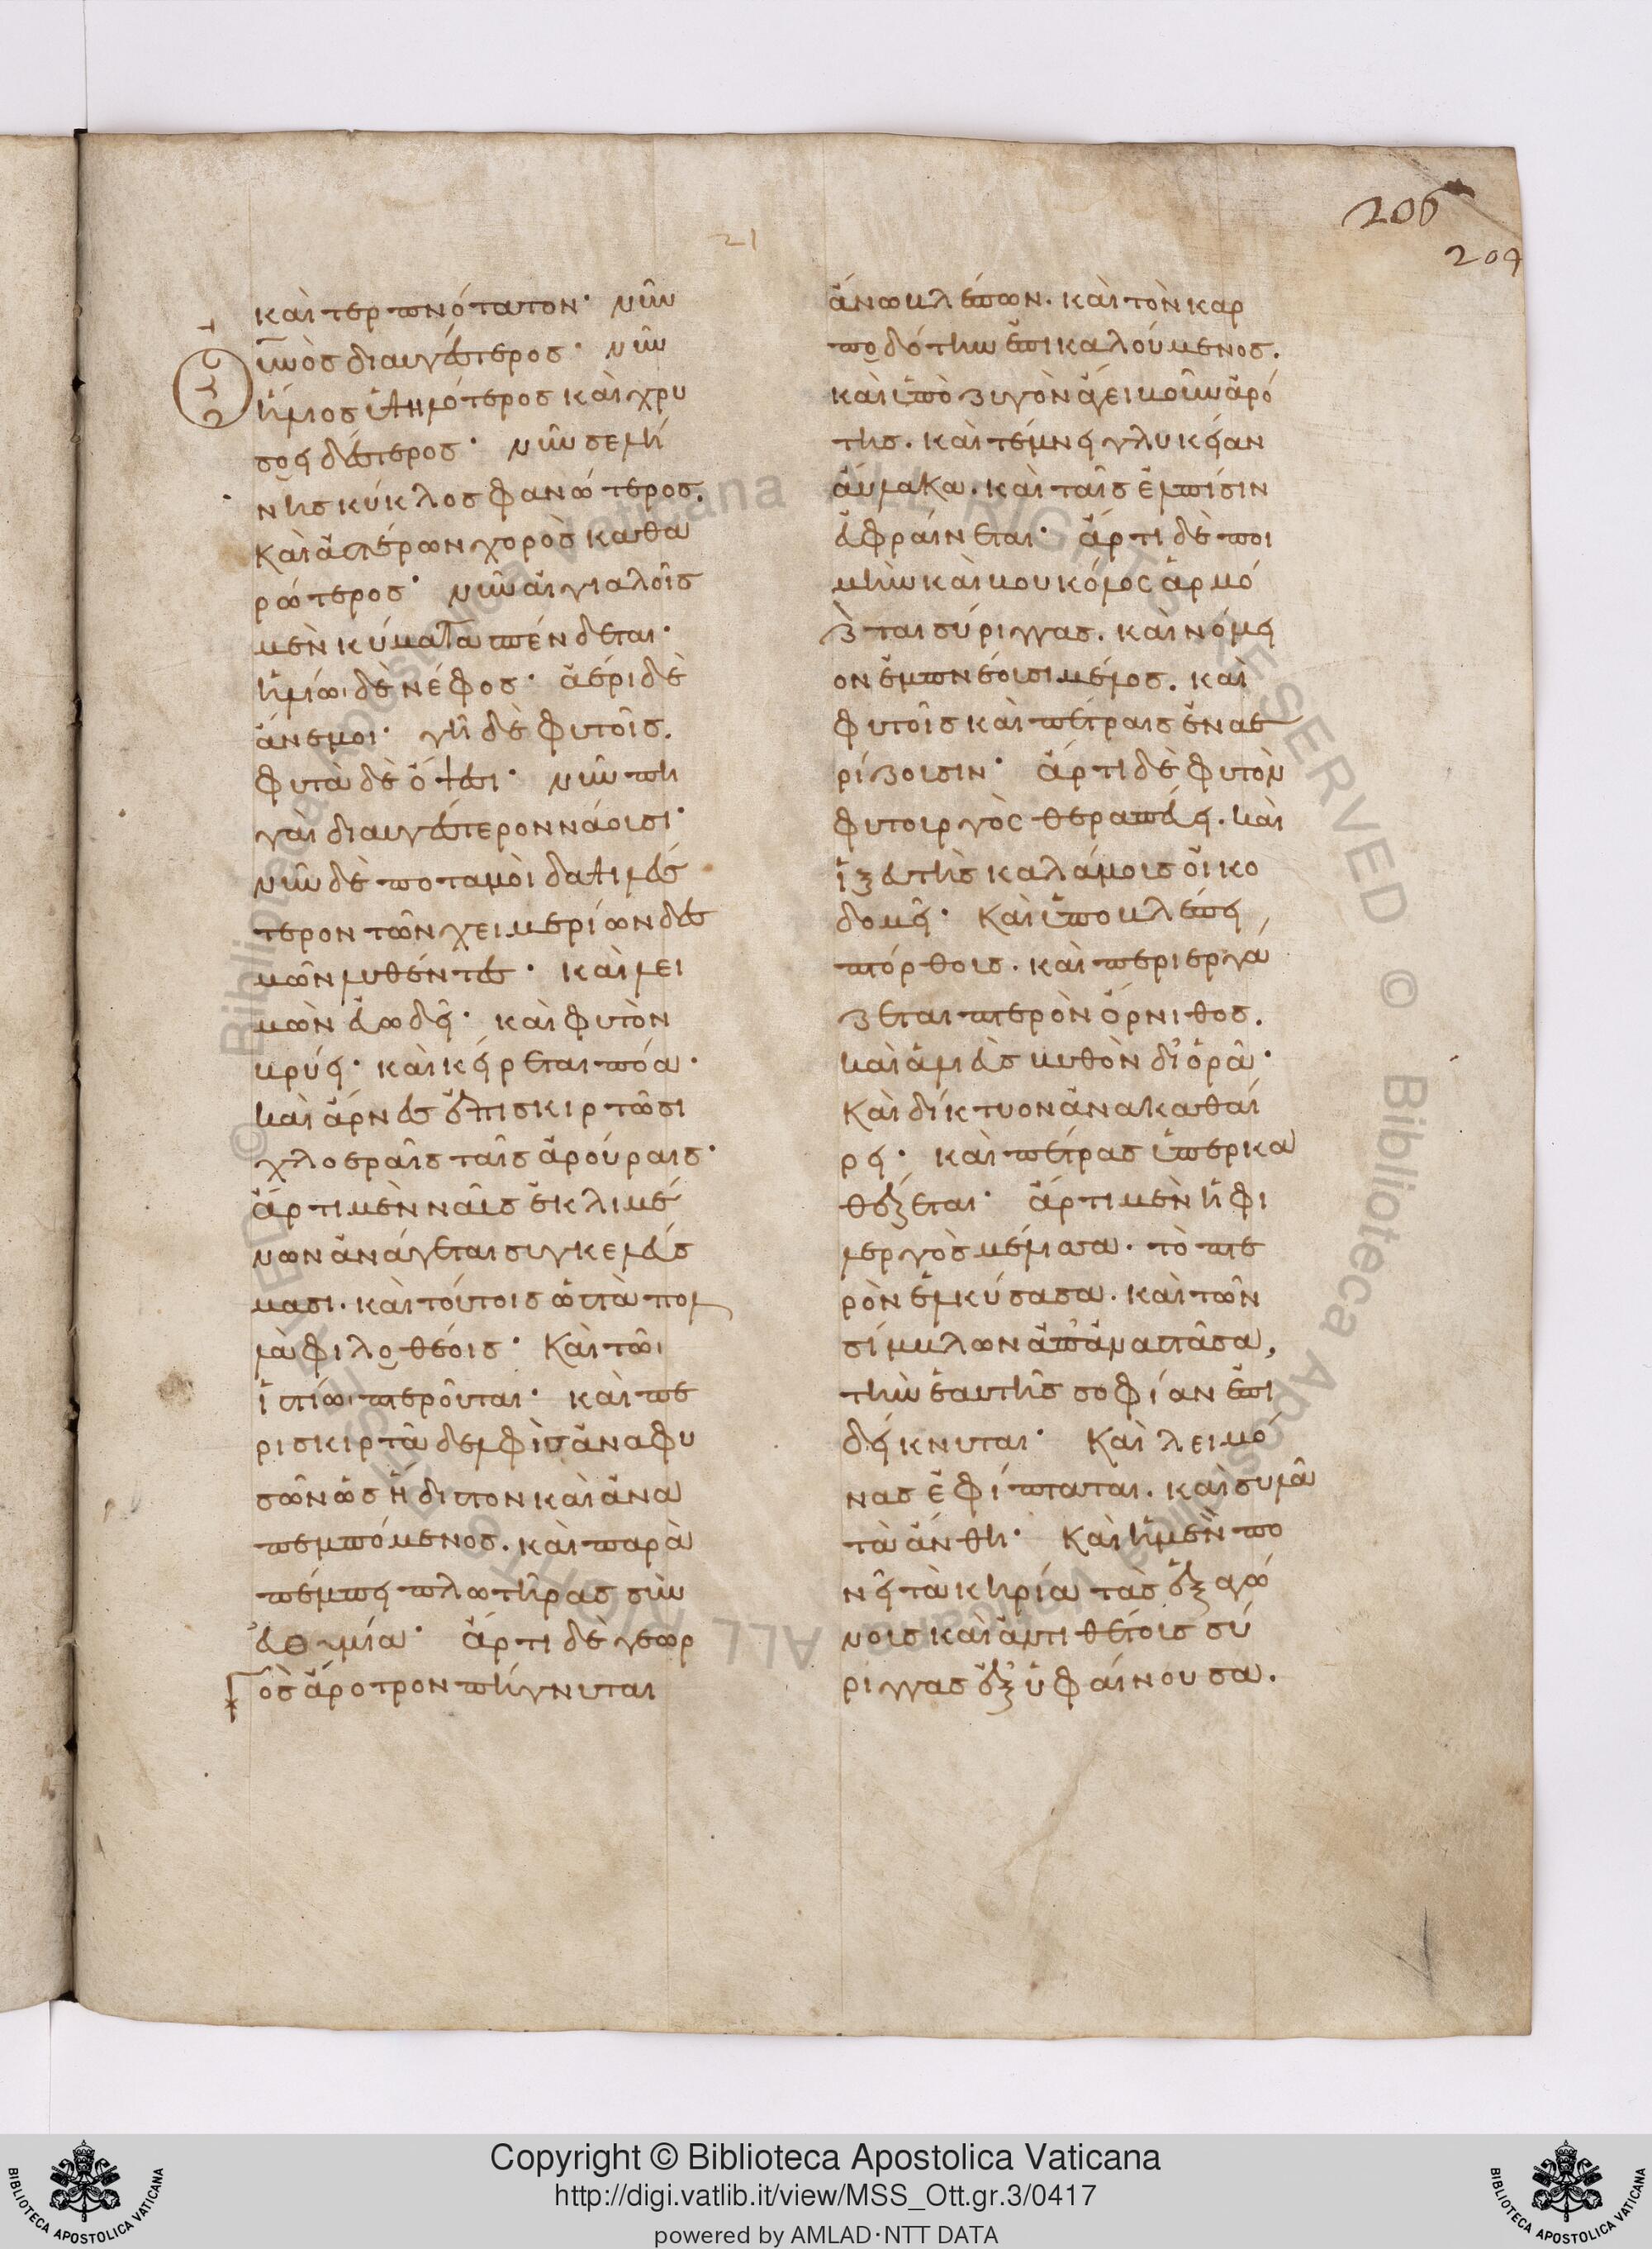 206
209
21
καὶ τερπνότατον· νῦν
οὐνὸς διαυγέστερος· νῦν
ἥλιος ὑψηλότερος καὶ χρυ
σοειδέστερος· νῦν σελή
νης κύκλος φανώτερος.
καὶ ἀστέρων χορὸς καθα
ρώτερος· νῦν αἰγιαλοῖς
μὲν κύματα σπένδεται·
ἡλίωι δὲ νέφος· ἀέρι δὲ
ἄνεμοι· γῆ δὲ φυτοῖς.
φυτὰ δὲ ὄψεσι· νῦν πη
γαὶ διαυγέστερον νάουσι·
νῦν δὲ ποταμοὶ δαψιλέσ
τερον τῶν χειμερίων δεσ
μῶν λυθέντες· καὶ λει
μὼν εὐωδεῖ· καὶ φυτὸν
βρύει· καὶ κείρεται πόα·
καὶ ἄρνες ἐπισκιρτῶσι
χλοεραῖς ταῖς ἀρούραις·
ἄρτι μὲν ναῦς ἐκ λιμέ
νων ἀνάγεται συγκελεύσ
μασι. καὶ τούτοις ὡς τὰ πολ
λὰ φιλοθέοις· Καὶ τῶι
ἱστίωι πτεροῦται· καὶ πε
ρισκιρτᾶ δελφὶς ἀναφυ
σῶν ὡς ἥδιστον καὶ ἀνα
πεμπόμενος. καὶ παρὰ
πέμπει πλωτῆρας σὺν
εὐθυμία· ἄρτι δὲ γεωρ
γὸς ἄροτρον πήγνυται
ἄνω βλέπων. καὶ τὸν καρ
ποδότην ἐπικαλούμενος.
καὶ ὑπὸ ζυγὸν ἄγει βοῦν ἀρό
της. καὶ τέμνει γλυκεῖαν
αὔλακα. καὶ ταῖς ἐλπίσιν
εὐφραίνεται· ἄρτι δὲ ποι
μὴν καὶ βουκόλος ἁρμό
ζεται σύριγγας. καὶ νόμει
ον ἐμπνέουσι μέλος. καὶ
φυτοῖς καὶ πέτραις ἐναε
ρίζουσιν· ἄρτι δὲ φυτὸν
φυτουργὸς θεραπεύει. καὶ
ἰξευτὴς καλάμους οἰκο
δομεῖ· Καὶ ὑποβλέπει
πτόρθους. καὶ περιεργά
ζεται πτερὸν ὄρνιθος.
καὶ ἁλιεὺς βυθὸν διορᾶ·
Καὶ δίκτυον ἀνακαθαί
ρει· καὶ πέτρας ὑπερκα
θέζεται· ἄρτι μὲν ἡ φι
λεργὸς μέλισσα. τὸ πτε
ρὸν ἐκλύσασα. καὶ τῶν
σίμβλων ἀπαναστᾶσα,
τὴν ἑαυτῆς σοφίαν ἐπι
δείκνυται· Καὶ λειμό
νας ἐφίπταται. καὶ συλᾶ
τὰ ἄνθη· Καὶ ἡ μὲν πο
νεῖ τὰ κηρία τὰς ἑξαγώ
νους καὶ ἀντιθέτους σύ
ριγγας ἐξυφαίνουσα.
© Biblioteca Apostolica Vaticana ALL RIGHTS RESERVED
Copyright © Biblioteca Apostolica Vaticana
http://digi.vatlib.it/view/MSS_Ott.gr.3/0417
powered by AMLAD·NTT DATA
BIBLIOTECA APOSTOLICA VATICANA
BIBLIOTECA APOSTOLICA VATICANA